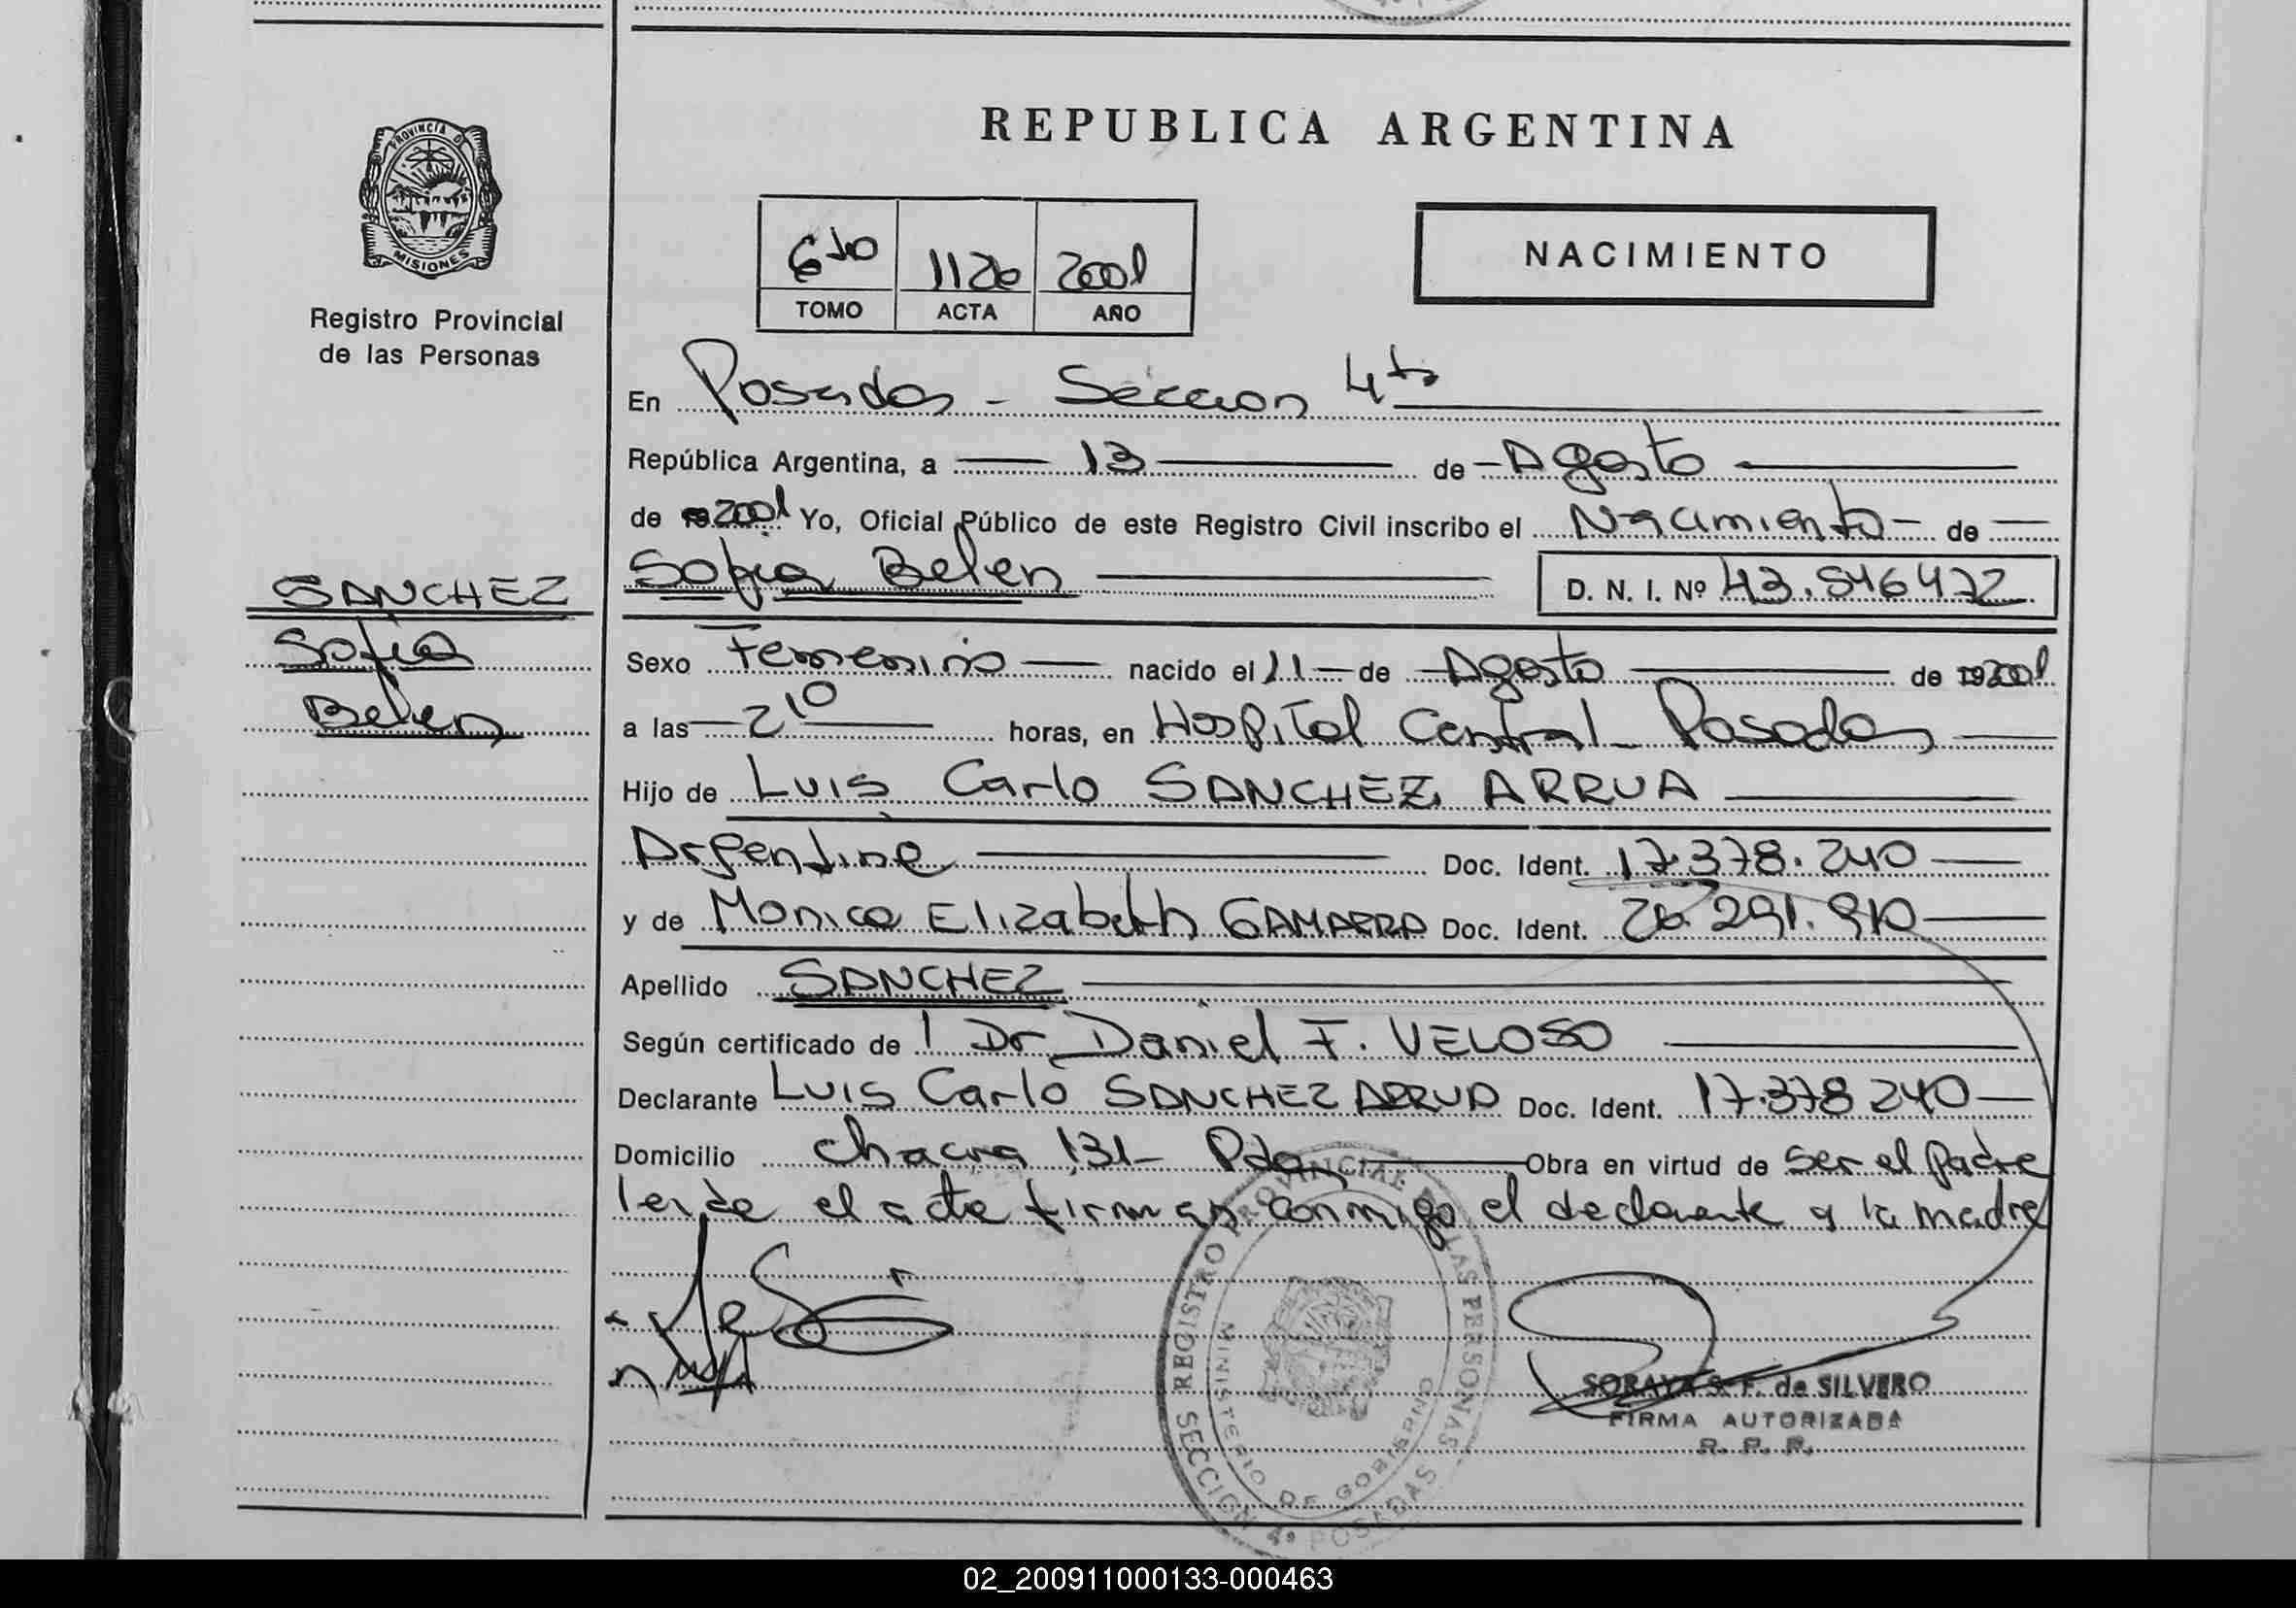 REPUBLICA ARGENTINA
PROVINCIA DE MISIONES
Registro Provincial
de las Personas
NACIMIENTO
6to 1126 2001
TOMO ACTA AÑO
En Posadas - Sección 4ta
República Argentina, a 13 de Agosto
de 2001 Yo, Oficial Público de este Registro Civil inscribo el Nacimiento de
SANCHEZ
Sofia
Belen
Sofia Belen D. N. I. Nº 43.546472
Sexo Femenino nacido el 11 de Agosto de 2001
a las 2 10 horas, en Hospital Central - Posadas
Hijo de Luis Carlo SANCHEZ ARRUA
Argentina Doc. Ident. 17.378.240
y de Monica Elizabeth GAMARRA Doc. Ident. 26.291.910
Apellido SANCHEZ
Según certificado de l Dr Daniel F. VELOSO
Declarante Luis Carlo SANCHEZ ARRUA Doc. Ident. 17.378240
Domicilio chacra 131- Pdas Obra en virtud de ser el padre
leida el acta firman conmigo el declarante y la madre
REGISTRO PROVINCIAL DE LAS PERSONAS
MINISTERIO DE GOBIERNO
SECCION 4ª POSADAS
SORAYA S. F. de SILVERO
FIRMA AUTORIZADA
R. P. P.
02_200911000133-000463